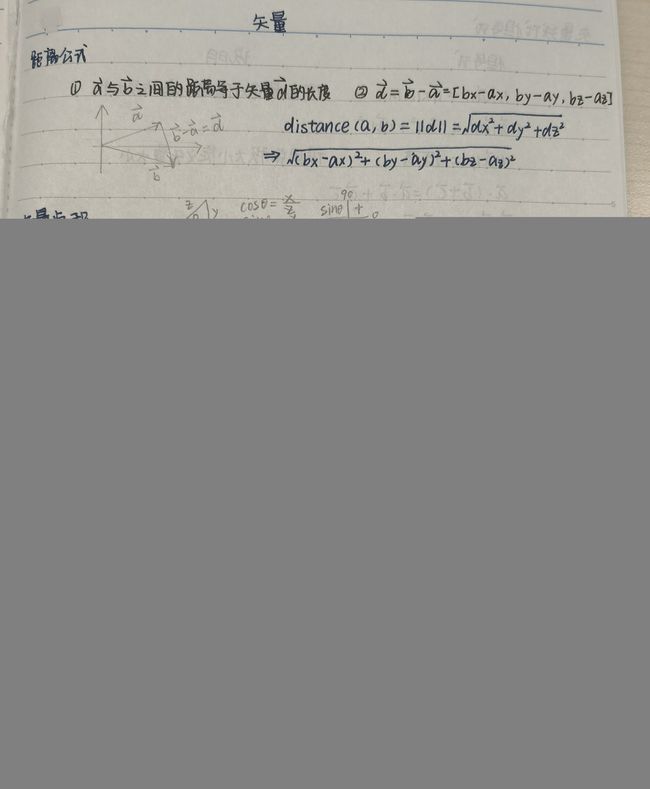 矢量
距离公式
① a⃗与b⃗之间的距离等于矢量d⃗的长度 ② d⃗=b⃗-a⃗=[bx-ax, by-ay, bz-az]
a⃗
b⃗-a⃗=d⃗
b⃗
distance(a, b)=||d||=√dx²+dy²+dz²
⇒ √(bx-ax)²+(by-ay)²+(bz-az)²
z y cosθ=x/z sinθ 90 + 0